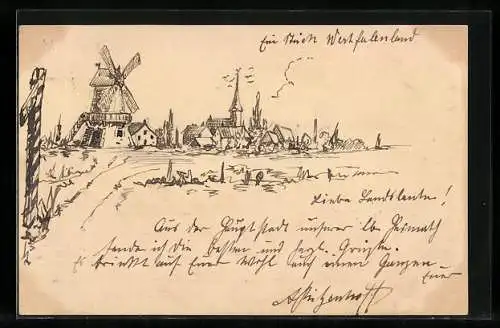 Ein Stück Westfalenland
Liebe Landsleute!
Aus der Hauptstadt unserer lb Heimath
sende ich die besten und herzl. Grüße.
Es trinkt auf Euer Wohl auch einen Ganzen
Euer